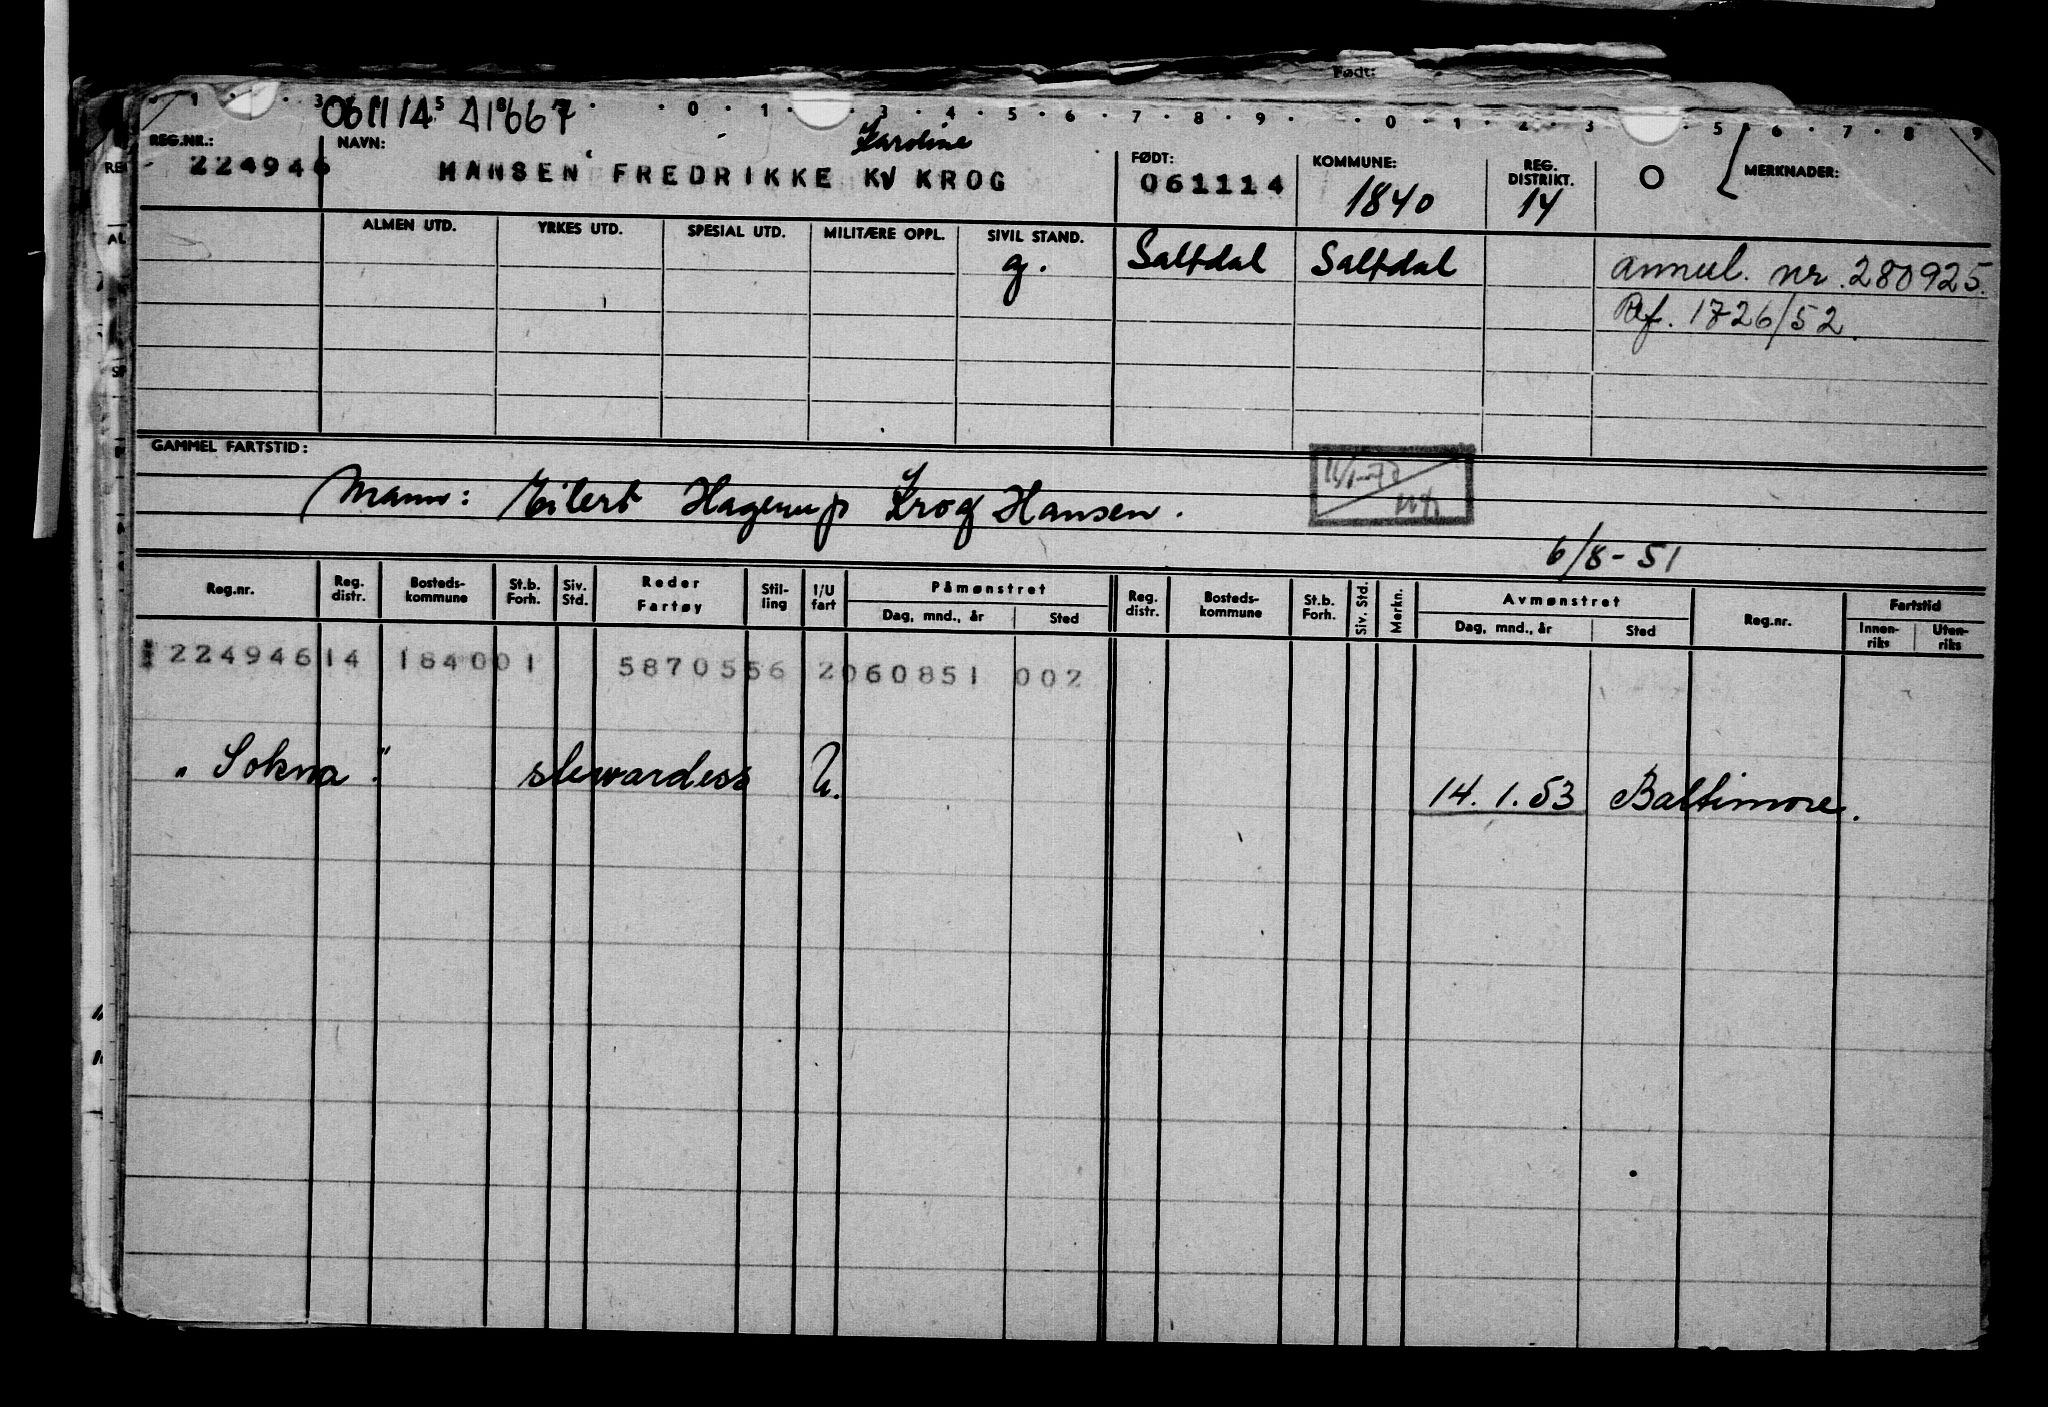 Født:
061114 41667
REG.NR.: NAVN: Karoline FØDT: KOMMUNE: REG. DISTRIKT. O MERKNADER:
224946 HANSEN FREDRIKKE KV KROG 061114 1840 14
ALMEN UTD. YRKES UTD. SPESIAL UTD. MILITÆRE OPPL. SIVIL STAND.
g. Saltdal Saltdal annul. nr. 280925.
Ref. 1726/52.
GAMMEL FARTSTID:
Mann: Eilert Hagerup Krog Hansen.
6/8-51
Reg.nr. Reg. distr. Bosteds-kommune St.b. Forh. Siv. Std. Reder Fartøy Stil-ling I/U fart Påmønstret Dag, mnd., år Sted Reg. distr. Bosteds-kommune St.b. Forh. Siv. Std. Merkn. Avmønstret Dag, mnd., år Sted Reg.nr. Fartstid Innen-riks Uten-riks
224946 14 1840 01 5870556 2 060851 002
"Sokna". stewardess U. 14.1.53 Baltimore.